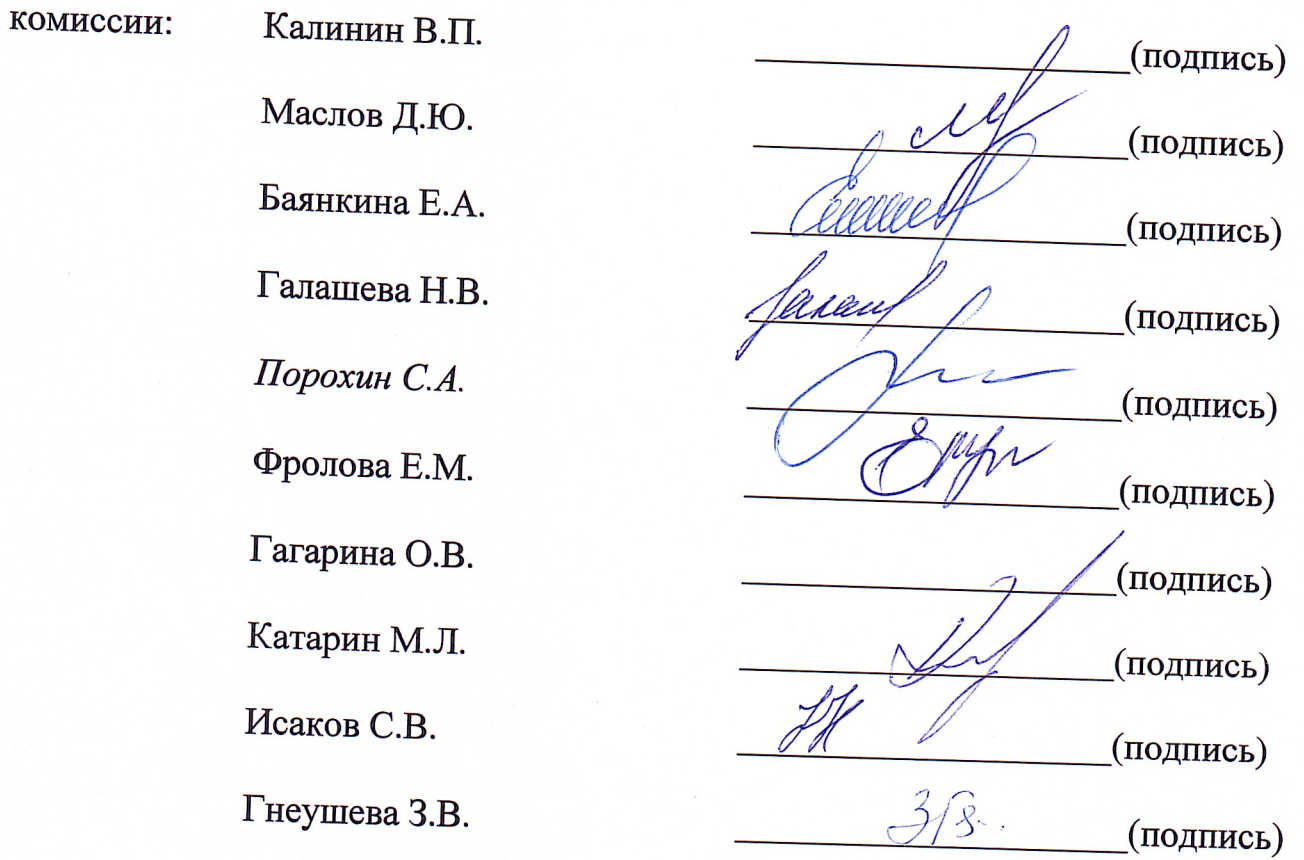 комиссии: Калинин В.П. (подпись)
Маслов Д.Ю. (подпись)
Баянкина Е.А. (подпись)
Галашева Н.В. (подпись)
Порохин С.А. (подпись)
Фролова Е.М. (подпись)
Гагарина О.В. (подпись)
Катарин М.Л. (подпись)
Исаков С.В. (подпись)
Гнеушева З.В. (подпись)